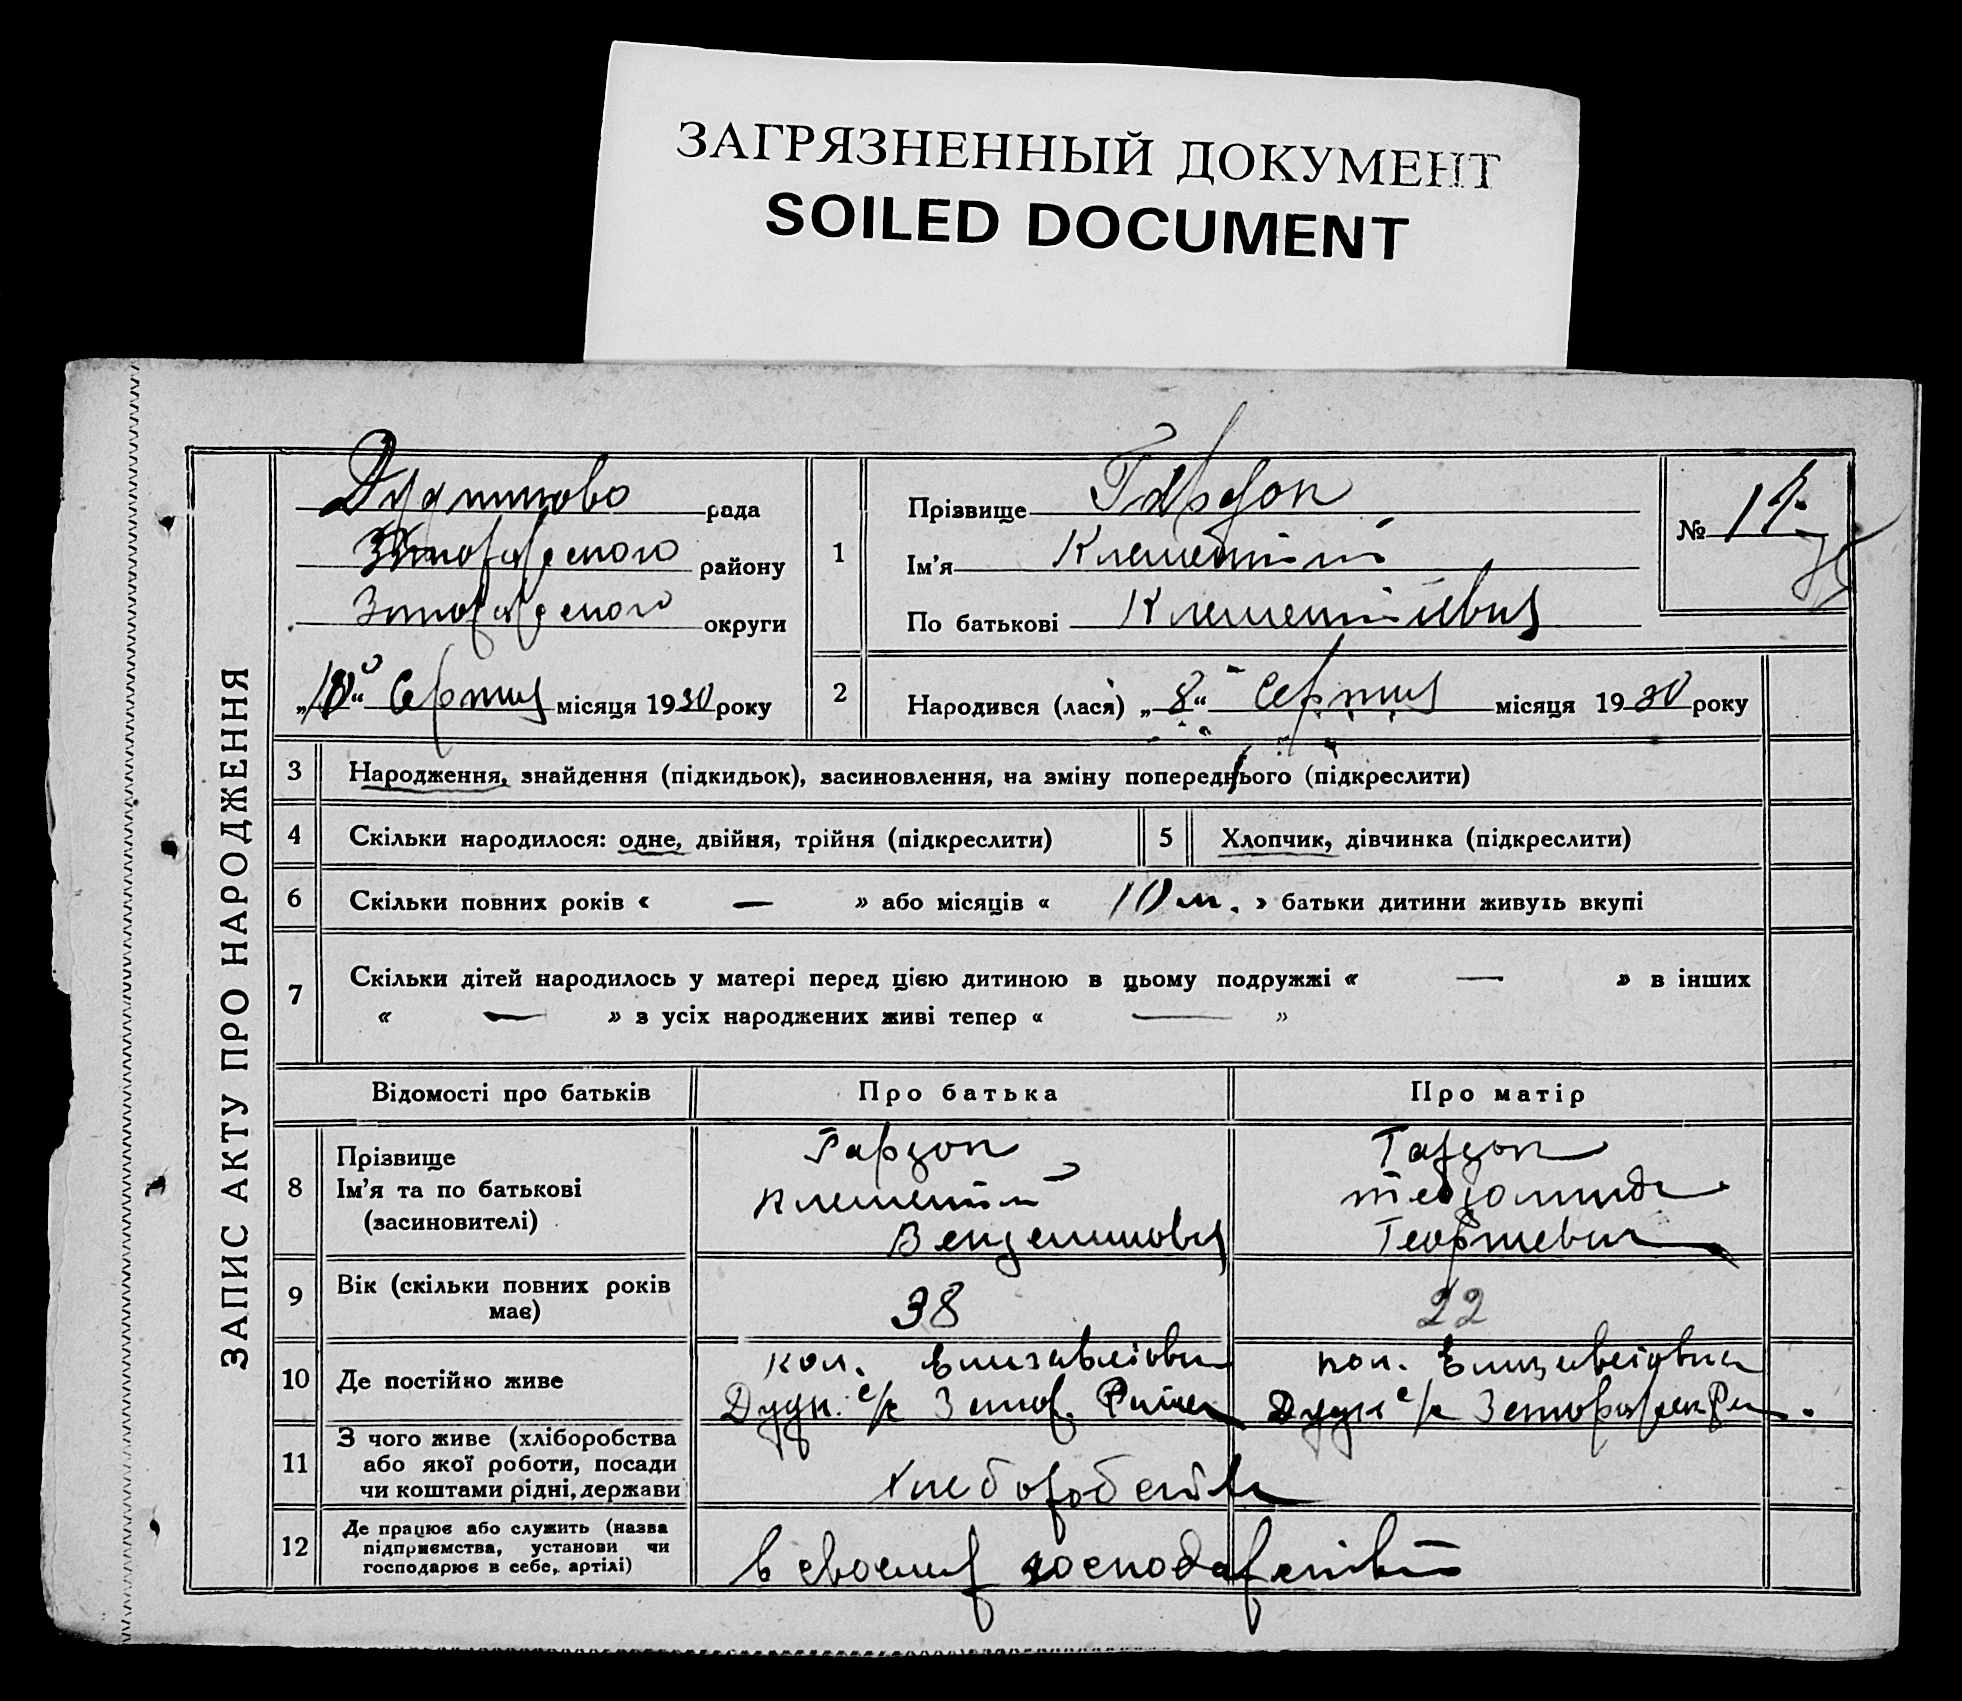 ЗАГРЯЗНЕННЫЙ ДОКУМЕНТ
SOILED DOCUMENT
ЗАПИС АКТУ ПРО НАРОДЖЕННЯ
рада
району
округи
„10“ Серпня місяця 1930 року
1
Прізвище
Ім'я Клементій
По батькові Клементієвич
№
2
Народився (лася) „8“ Серпня місяця 1930 року
3
Народження, знайдення (підкидьок), засиновлення, на зміну попереднього (підкреслити)
4
Скільки народилося: одне, двійня, трійня (підкреслити)
5
Хлопчик, дівчинка (підкреслити)
6
Скільки повних років « — » або місяців « 10 м. » батьки дитини живуть вкупі
7
Скільки дітей народилось у матері перед цією дитиною в цьому подружжі « — » в інших
« — » з усіх народжених живі тепер « — »
Відомості про батьків
Про батька
Про матір
8
Прізвище
Ім'я та по батькові
(засиновителі)
Клементій
9
Вік (скільки повних років
має)
38
22
10
Де постійно живе
кол.
Дудн. с/р
кол.
с/р
11
З чого живе (хліборобства
або якої роботи, посади
чи коштами рідні, держави
12
Де працює або служить (назва
підприємства, установи чи
господарює в себе, артілі)
в своєму господарстві